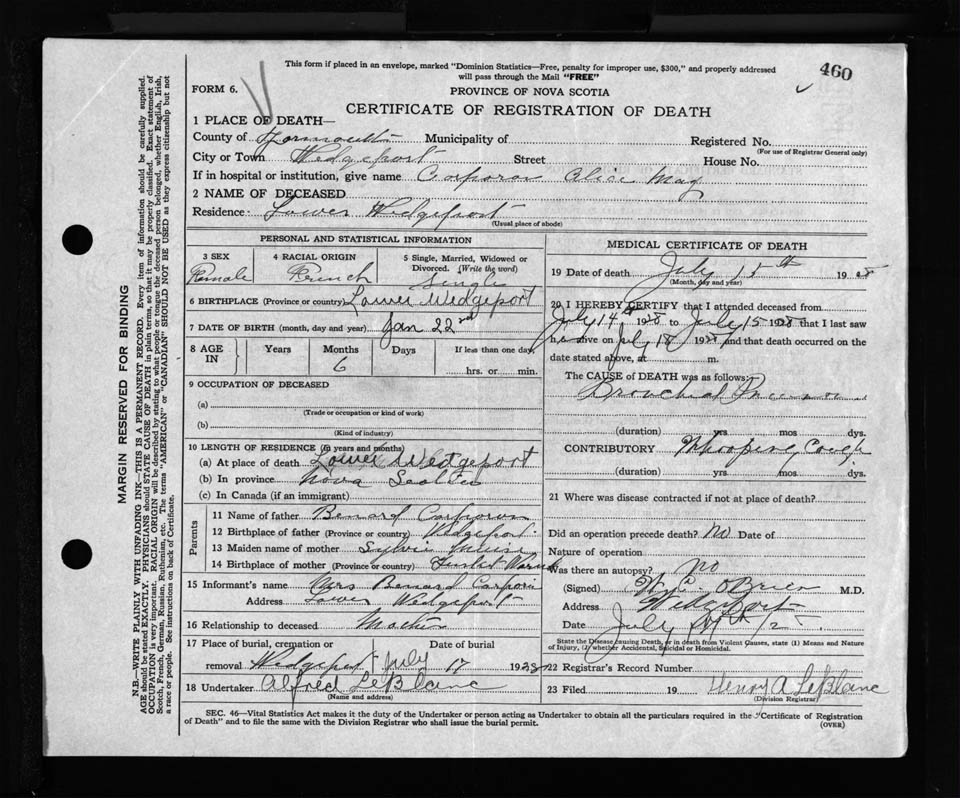 This form if placed in an envelope, marked "Dominion Statistics—Free, penalty for improper use, $300," and properly addressed
will pass through the Mail "FREE"
460
FORM 6.
PROVINCE OF NOVA SCOTIA
CERTIFICATE OF REGISTRATION OF DEATH
1 PLACE OF DEATH—
County of Yarmouth Municipality of Registered No.
(For use of Registrar General only)
City or Town Wedgeport Street House No.
If in hospital or institution, give name Corporon Alice May
2 NAME OF DECEASED
Residence: Lower Wedgeport
(Usual place of abode)
PERSONAL AND STATISTICAL INFORMATION
3 SEX 4 RACIAL ORIGIN 5 Single, Married, Widowed or
Divorced. (Write the word)
Female French Single
6 BIRTHPLACE (Province or country) Lower Wedgeport
7 DATE OF BIRTH (month, day and year) Jan 22nd
8 AGE IN Years Months Days If less than one day,
6 hrs. or min.
9 OCCUPATION OF DECEASED
(a)
(Trade or occupation or kind of work)
(b)
(Kind of industry)
10 LENGTH OF RESIDENCE (in years and months)
(a) At place of death Lower Wedgeport
(b) In province Nova Scotia
(c) In Canada (if an immigrant)
Parents
11 Name of father Benard
12 Birthplace of father (Province or country) Wedgeport
13 Maiden name of mother Sylvie Muise
14 Birthplace of mother (Province or country)
15 Informant's name Mrs Benard
Address Lower Wedgeport
16 Relationship to deceased Mother
17 Place of burial, cremation or Date of burial
removal Wedgeport July 17 1928
18 Undertaker Alfred LeBlanc
(Name and address)
MEDICAL CERTIFICATE OF DEATH
19 Date of death July 15th 1928
(Month, day and year)
20 I HEREBY CERTIFY that I attended deceased from
July 14th 1928 to July 15 1928 that I last saw
alive on July 1928 and that death occurred on the
date stated above, at m.
The CAUSE of DEATH was as follows:
Bronchial Pneumonia
(duration) yrs mos dys.
CONTRIBUTORY Whooping Cough
(duration) yrs mos dys.
21 Where was disease contracted if not at place of death?
Did an operation precede death? No Date of
Nature of operation
Was there an autopsy? No
(Signed) O'Brien M.D.
Address Wedgeport
Date July
State the Disease causing Death, or in death from Violent Causes, state (1) Means and Nature
of Injury, (2) whether Accidental, Suicidal or Homicidal.
22 Registrar's Record Number
23 Filed 19 Henry A LeBlanc
(Division Registrar)
SEC. 46—Vital Statistics Act makes it the duty of the Undertaker or person acting as Undertaker to obtain all the particulars required in the "Certificate of Registration
of Death" and to file the same with the Division Registrar who shall issue the burial permit.
(OVER)
MARGIN RESERVED FOR BINDING
N.B.—WRITE PLAINLY WITH UNFADING INK—THIS IS A PERMANENT RECORD. Every item of information should be carefully supplied.
AGE should be stated EXACTLY. PHYSICIANS should STATE CAUSE OF DEATH in plain terms, so that it may be properly classified. Exact statement of
OCCUPATION is very important. RACIAL ORIGIN will be described by stating to what people or tongue the deceased person belonged, whether English, Irish,
Scotch, French, German, Russian, Ruthenian, etc. The terms "AMERICAN" or "CANADIAN" SHOULD NOT BE USED as they express citizenship but not
a race or people. See instructions on back of Certificate.